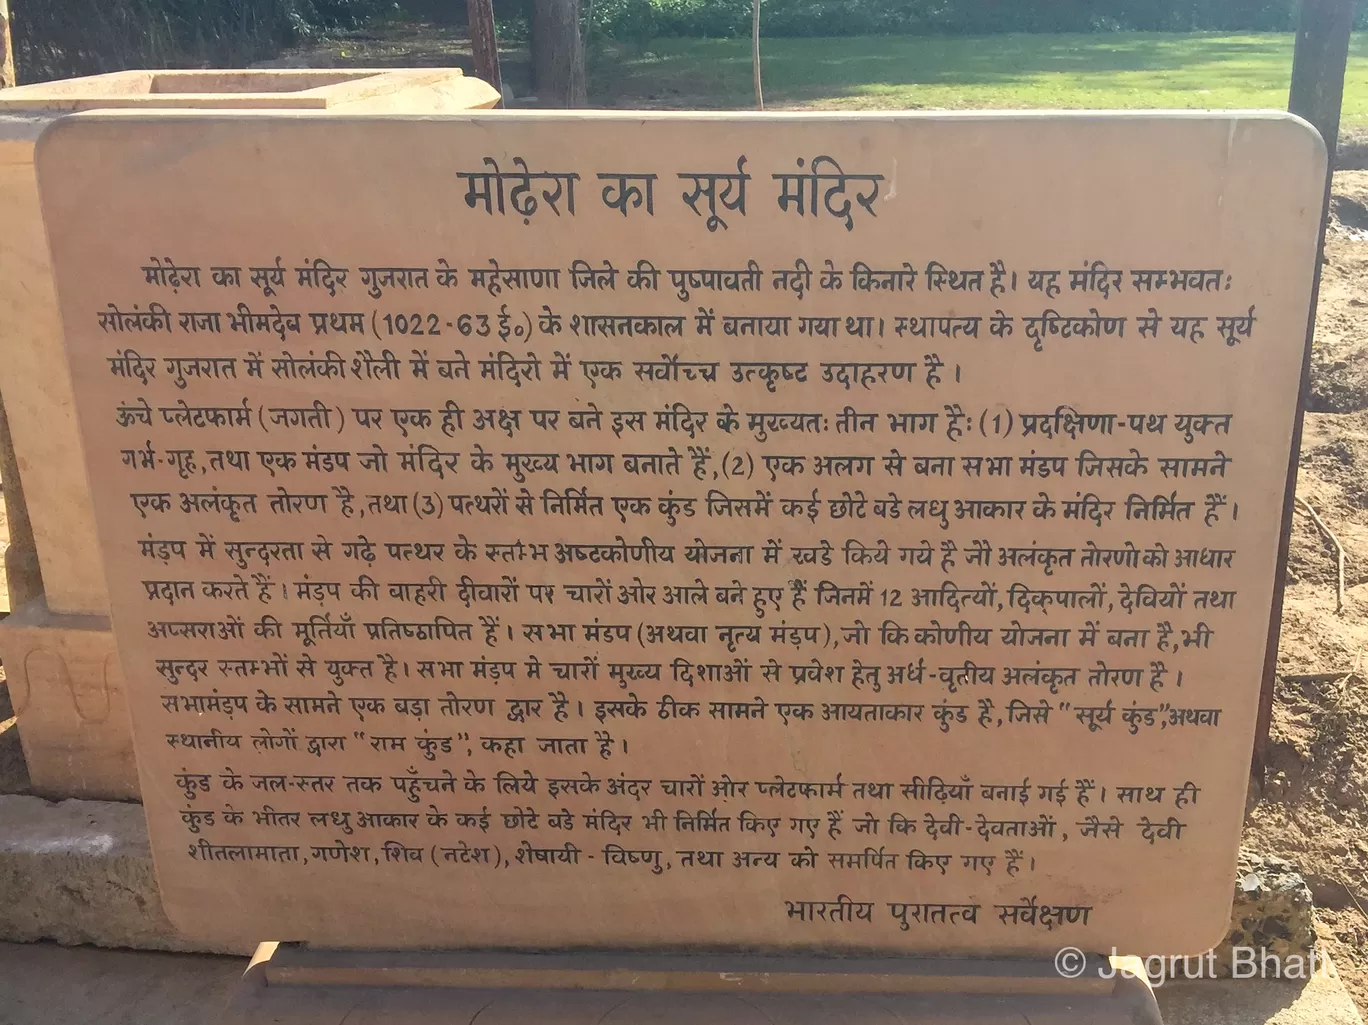 मोढ़ेरा का सूर्य मंदिर
मोढ़ेरा का सूर्य मंदिर गुजरात के महेसाणा जिले की पुष्पावती नदी के किनारे स्थित है। यह मंदिर सम्भवतः
सोलंकी राजा भीमदेव प्रथम (1022-63 ई०) के शासनकाल में बनाया गया था। स्थापत्य के दृष्टिकोण से यह सूर्य
मंदिर गुजरात में सोलंकी शैली में बने मंदिरो में एक सर्वोच्च उत्कृष्ट उदाहरण है ।
ऊंचे प्लेटफार्म (जगती) पर एक ही अक्ष पर बने इस मंदिर के मुख्यतः तीन भाग हैः (1) प्रदक्षिणा-पथ युक्त
गर्भ-गृह, तथा एक मंडप जो मंदिर के मुख्य भाग बनाते हैं, (2) एक अलग से बना सभा मंडप जिसके सामने
एक अलंकृत तोरण है, तथा (3) पत्थरों से निर्मित एक कुंड जिसमें कई छोटे बडे लधु आकार के मंदिर निर्मित हैं।
मंड़प में सुन्दरता से गढ़े पत्थर के स्तंभ अष्टकोणीय योजना में खडे किये गये है जो अलंकृत तोरणो को आधार
प्रदान करते हैं । मंड़प की बाहरी दीवारों पर चारों ओर आले बने हुए हैं जिनमें 12 आदित्यों, दिक्पालों, देवियों तथा
अप्सराओं की मूर्तियाँ प्रतिष्ठापित हैं । सभा मंडप (अथवा नृत्य मंड़प), जो कि कोणीय योजना में बना है, भी
सुन्दर स्तम्भों से युक्त है। सभा मंड़प मे चारों मुख्य दिशाओं से प्रवेश हेतु अर्ध-वृतीय अलंकृत तोरण है ।
सभामंड़प के सामने एक बड़ा तोरण द्वार है। इसके ठीक सामने एक आयताकार कुंड है, जिसे "सूर्य कुंड", अथवा
स्थानीय लोगों द्वारा "राम कुंड", कहा जाता है ।
कुंड के जल-स्तर तक पहुँचने के लिये इसके अंदर चारों ओर प्लेटफार्म तथा सीढ़ियाँ बनाई गई हैं। साथ ही
कुंड के भीतर लधु आकार के कई छोटे बडे मंदिर भी निर्मित किए गए हैं जो कि देवी-देवताओं, जैसे देवी
शीतलामाता, गणेश, शिव (नटेश), शेषायी - विष्णु, तथा अन्य को समर्पित किए गए हैं ।
भारतीय पुरातत्व सर्वेक्षण
© Jagrut Bhatt